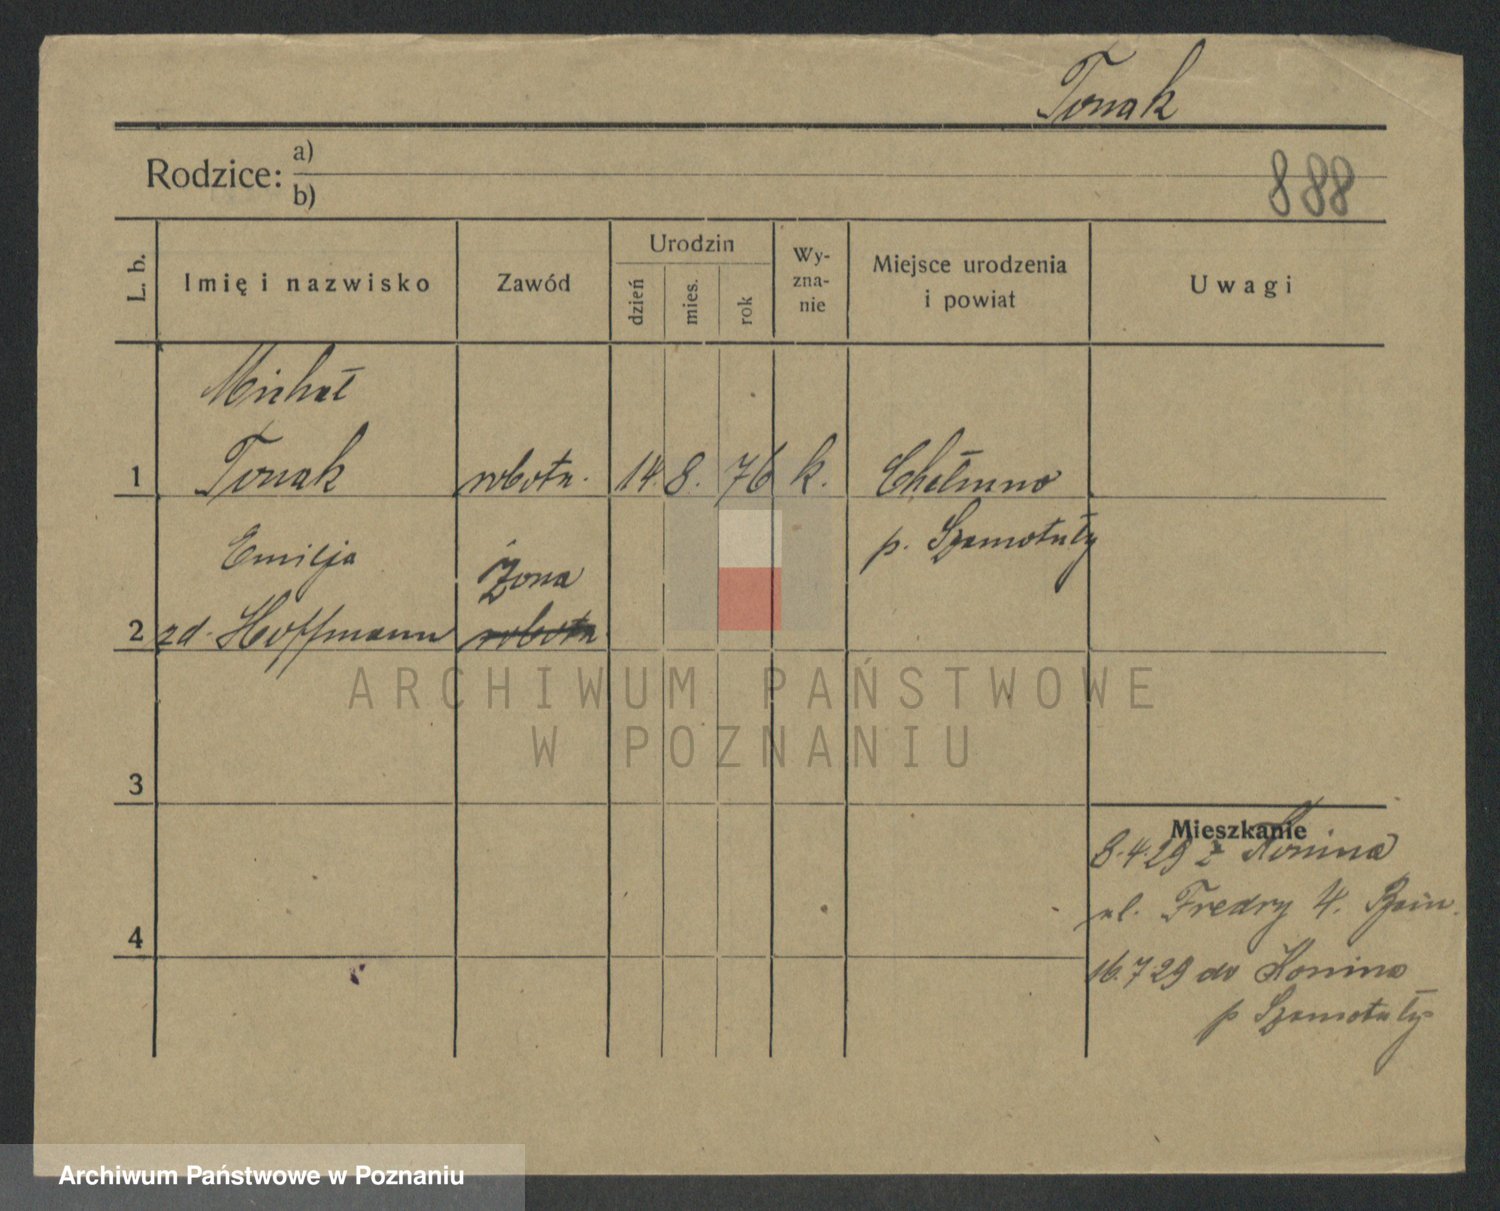 Tonak
Rodzice: a)
b)
888
L. b.
Imię i nazwisko
Zawód
Urodzin
dzień
mies.
rok
Wy-
zna-
nie
Miejsce urodzenia
i powiat
Uwagi
Michał
1 Tonak robotn. 14. 8. 76 k. Chełmno
p. Szamotuły
Emilja
Żona
2 zd. Hoffmann robotn
3
4
Mieszkanie
8.4.29 z Konina
ul. Fredry 4.
16.7.29 do Konina
p Szamotuły
ARCHIWUM PAŃSTWOWE
W POZNANIU
Archiwum Państwowe w Poznaniu